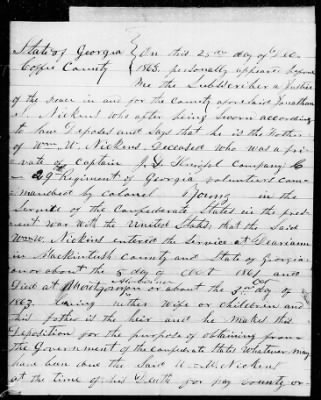 State of Georgia } On this 25th day of Dec
Coffee County } 1863 personally appears before
Me the Subscriber a Justice
of the peace in and for the County aforesaid Jonathan
Nickens who after being Sworn according
to law Deposes and Says that he is the Father
of Wm. W. Nickens Deceased who was a pri-
vate of Captain Company
29 Regiment of Georgia volunteers com-
manded by Colonel Young in the
Service of the Confederate States in the pres-
ent War with the United States that the Said
Wm W. Nickins entered the Service at Dariann
in Mackintosh County and State of Georgia
on or about the 5 day of Oct 1861 and
Died at on or about the 3rd day of Oct
1863 leaving neither Wife or Children and
his Father is the heir and he makes this
Deposition for the purpose of obtaining from
the Government of the Confederate States Whatever may
have been due the Said W. Nickens
at the time of his Death for pay bounty or